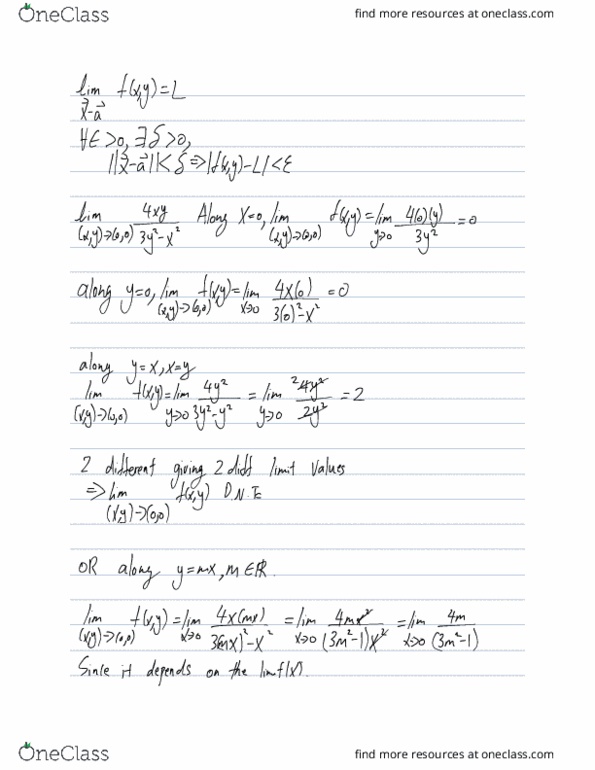 OneClass find more resources at oneclass.com
lim f(x,y)=L
x⃗→a⃗
∀ε>0, ∃δ>0,
||x⃗-a⃗||<δ ⇒ |f(x,y)-L|<ε
lim_{(x,y)→(0,0)} 4xy/(3y²-x²) Along x=0, lim_{(x,y)→(0,0)} f(x,y)=lim_{y→0} 4(0)(y)/3y² =0
along y=0, lim_{(x,y)→(0,0)} f(x,y)=lim_{x→0} 4x(0)/(3(0)²-x²) =0
along y=x, x=y
lim_{(x,y)→(0,0)} f(x,y)=lim_{y→0} 4y²/(3y²-y²) = lim_{y→0} ²4y²/2y² =2
2 different giving 2 diff limit values
⇒ lim_{(x,y)→(0,0)} f(x,y) D.N.E
OR along y=mx, m∈ℝ.
lim_{(x,y)→(0,0)} f(x,y)=lim_{x→0} 4x(mx)/(3(mx)²-x²) =lim_{x→0} 4mx²/((3m²-1)x²) =lim_{x→0} 4m/(3m²-1)
Since it depends on the lim f(x).
OneClass find more resources at oneclass.com